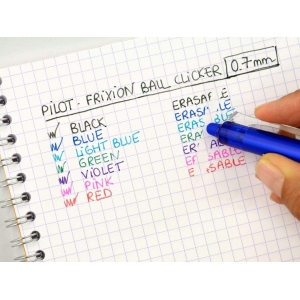 PILOT - FRIXION BALL CLICKER 0.7mm
BLACK
BLUE
LIGHT BLUE
GREEN
VIOLET
PINK
RED
ERASABLE
ERASABLE
ERASABLE
ERASABLE
ERASABLE
ERASABLE